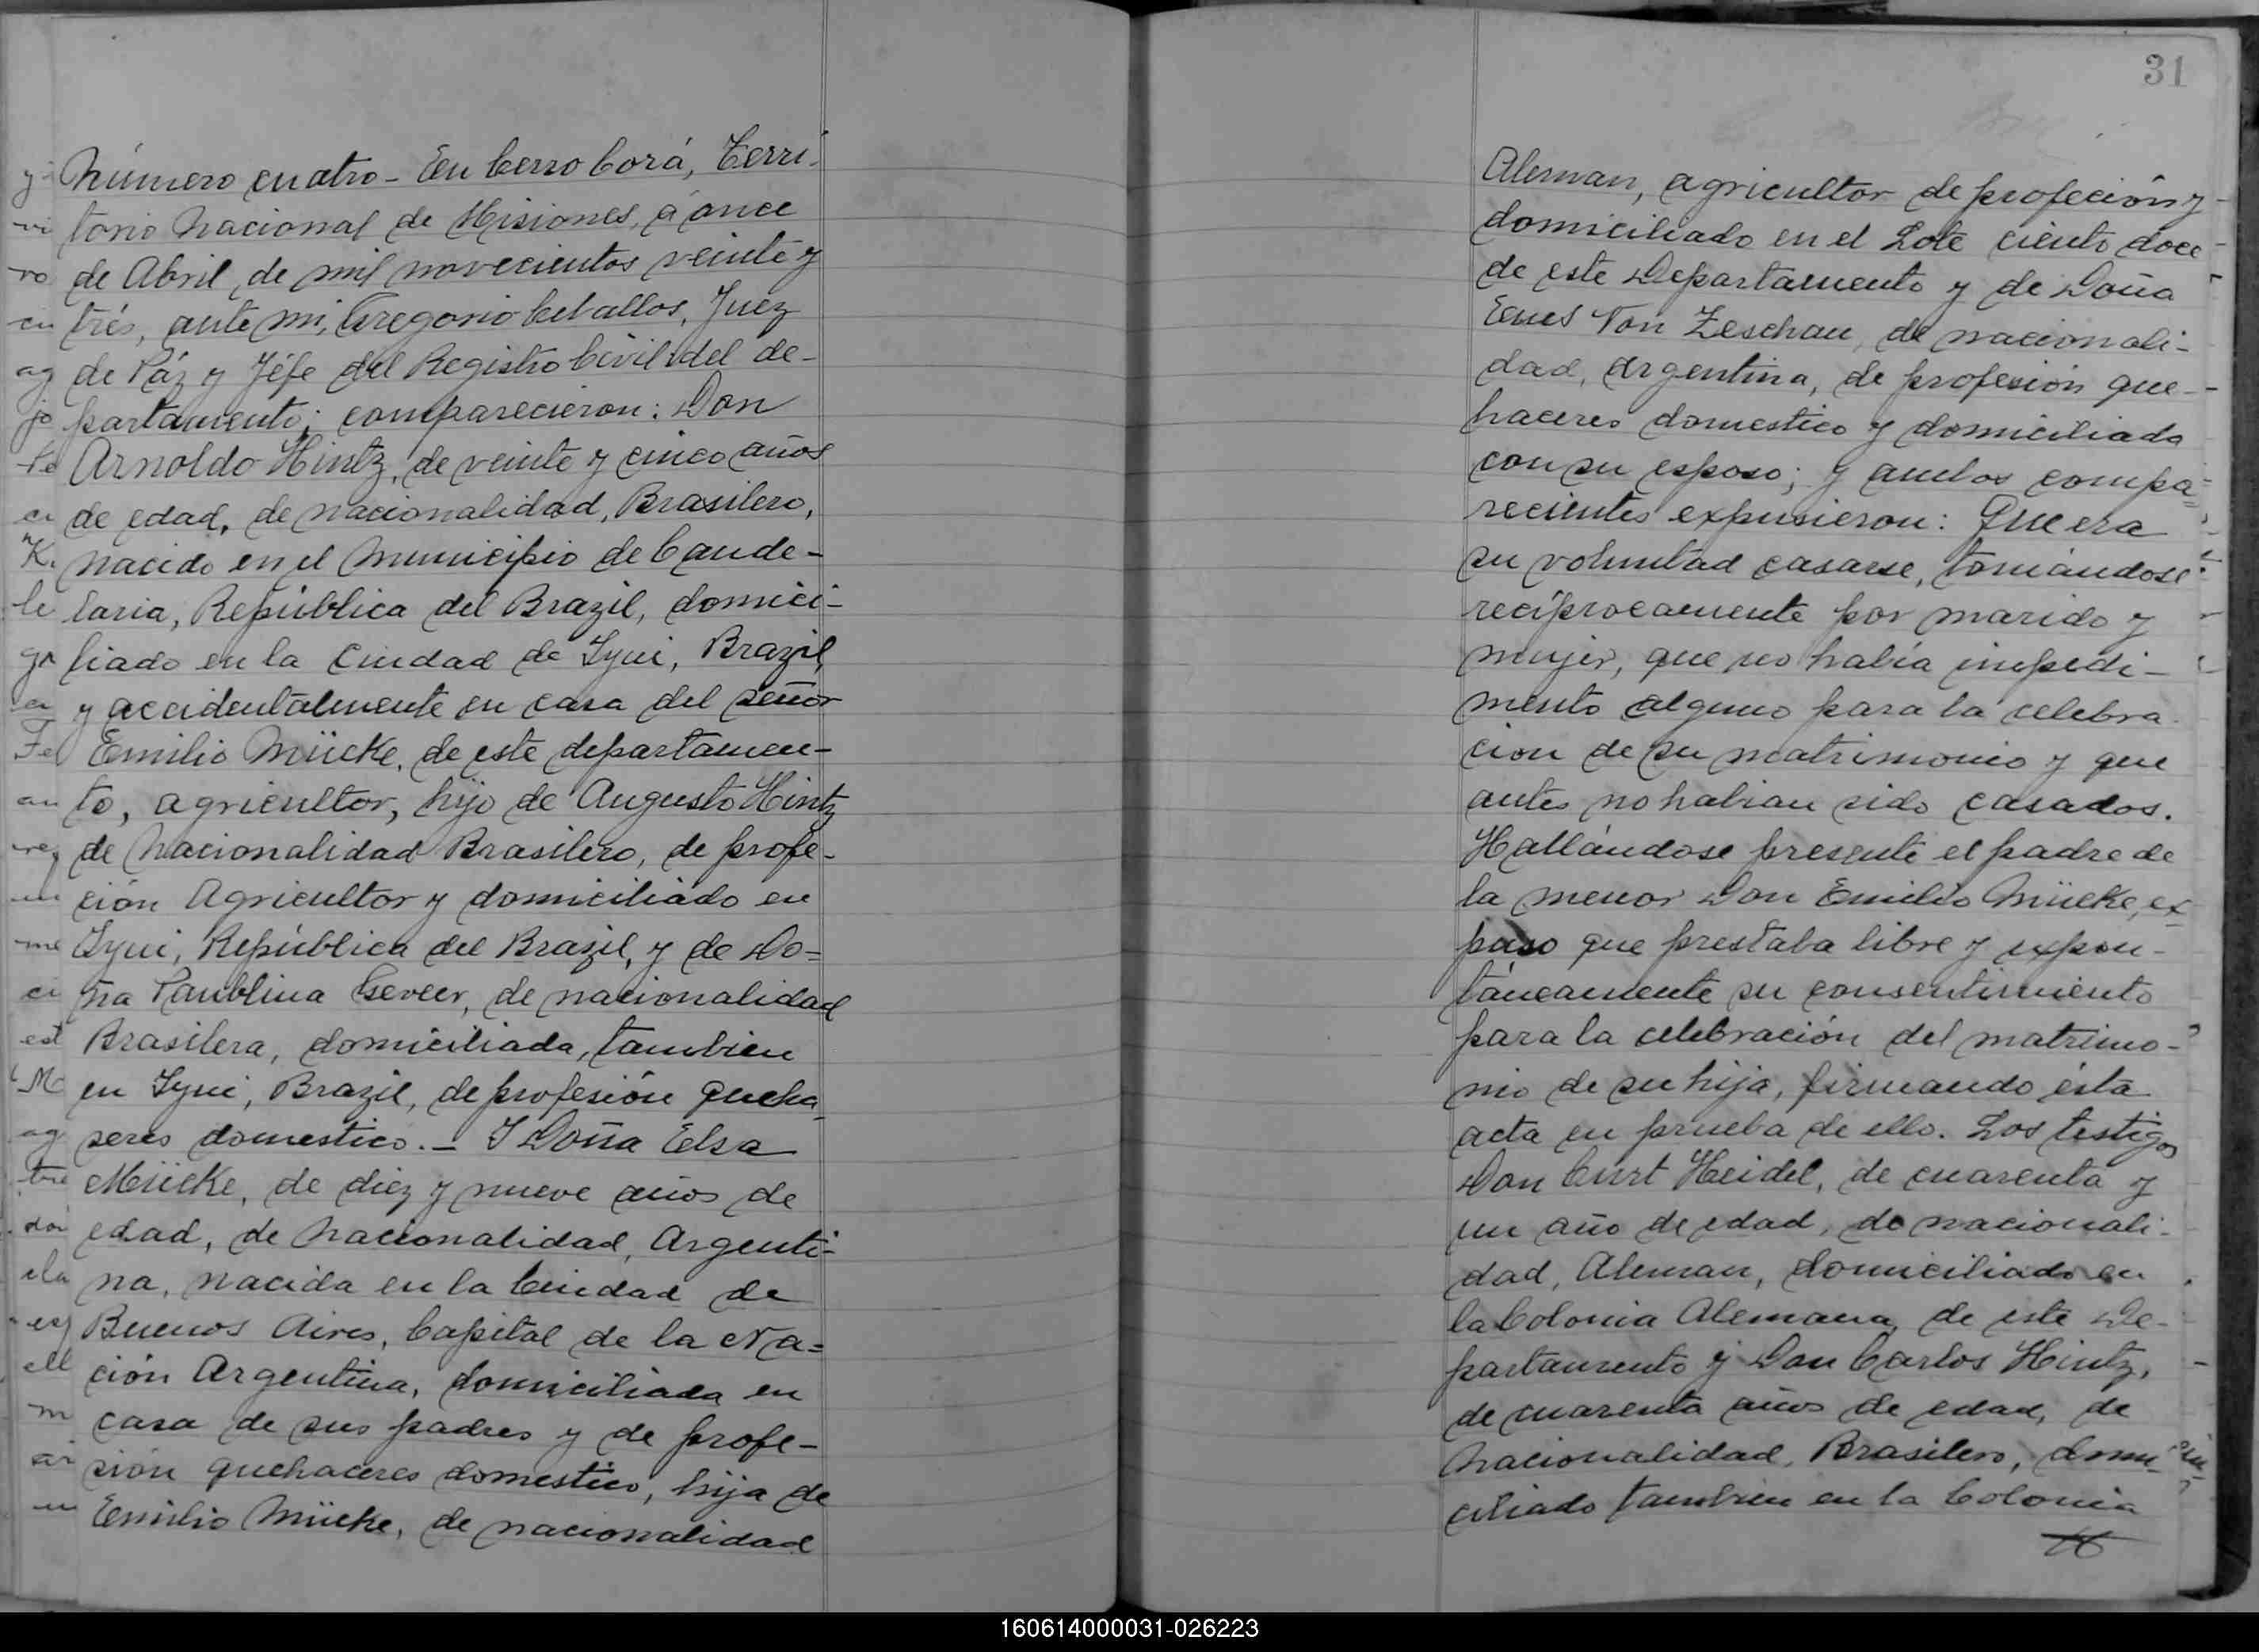 Número cuatro - En Cerro Corá, Terri-
torio Nacional de Misiones, á once
de Abril, de mil novecientos veinte y
trés, ante mi, Gregorio Ceballos, Juez
de Páz y Jéfe del Registro Civil del de-
partamento; comparecieron: Don
Arnoldo Hintz, de veinte y cinco años
de edad, de nacionalidad, Brasilero,
nacido en el Municipio de Cande-
laria, República del Brazil, domici-
liado en la Ciudad de Iyui, Brazil,
y accidentalmente en casa del señor
Emilio Mücke, de este departamen-
to, agricultor, hijo de Augusto Hintz
de Nacionalidad Brasilero, de profe-
ción Agricultor y domiciliado en
Iyui, República del Brazil, y de Do=
ña Paublina de nacionalidad
Brasilera, domiciliada, tambien
en Iyui, Brazil, de profesión queha
seres domestico. - I Doña Elsa
Mücke, de diez y nueve años de
edad, de Nacionalidad, Argenti-
na, nacida en la Ciudad de
Buenos Aires, Capital de la Na=
ción Argentina, domiciliada en
casa de sus padres y de profe-
sión quehaceres domestico, hija de
Emilio Mücke, de nacionalidad
31
Aleman, agricultor de profeción y
domiciliado en el Lote ciento doce
de este Departamento y de Doña
Von Zeschau, de nacionali-
dad, Argentina, de profesión que-
haceres domestico y domiciliada
con su esposo; y ambos compa=
recientes expusieron: Que era
su voluntad casarse, tomándose
recíprocamente por marido y
mujer, que no había impedi-
mento alguno para la celebra-
cion de su matrimonio y que
antes no habian sido casados.
Hallándose presente el padre de
la menor Don Emilio Mücke, ex
puso que prestaba libre y expon-
táneamente su consentimiento
para la celebración del matrimo-
nio de su hija, firmando ésta
acta en prueba de ello. Los testigos
Don Curt Heidel, de cuarenta y
un año de edad, de nacionali-
dad, Aleman, domiciliado en
la Colonia Alemana, de este De-
partamento y Don Carlos Hintz,
de cuarenta años de edad, de
Nacionalidad, Brasilero, domi-
ciliado tambien en la Colonia
160614000031-026223